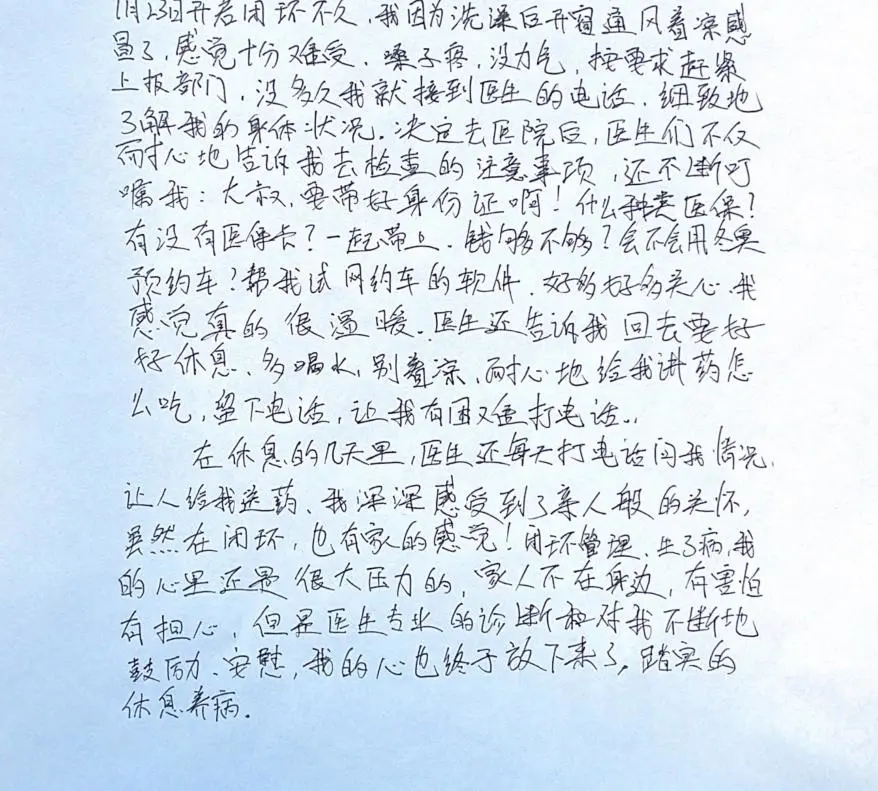 1月23日开启闭环不久,我因为洗澡后开窗通风着凉感
冒了,感觉十分难受、嗓子疼,没力气,按要求赶紧
上报部门,没多久我就接到医生的电话,细致地
了解我的身体状况。决定去医院后,医生们不仅
耐心地告诉我去检查的注意事项,还不断叮
嘱我:大叔,要带好身份证啊!什么种类医保?
有没有医保卡?一起带上、钱够不够?会不会用冬奥
预约车?帮我试网约车的软件、好多好多关心、我
感觉真的很温暖、医生还告诉我回去要好
好休息、多喝水,别着凉、耐心地给我讲药怎
么吃,留下电话,让我有困难打电话..
在休息的几天里,医生还每天打电话问我情况,
让人给我送药、我深深感受到了亲人般的关怀,
虽然在闭环,也有家的感觉!闭环管理、生了病,我
的心里还是很大压力的,家人不在身边,有害怕
有担心,但是医生专业的诊断和对我不断地
鼓励、安慰,我的心也终于放下来了,踏实的
休息养病.